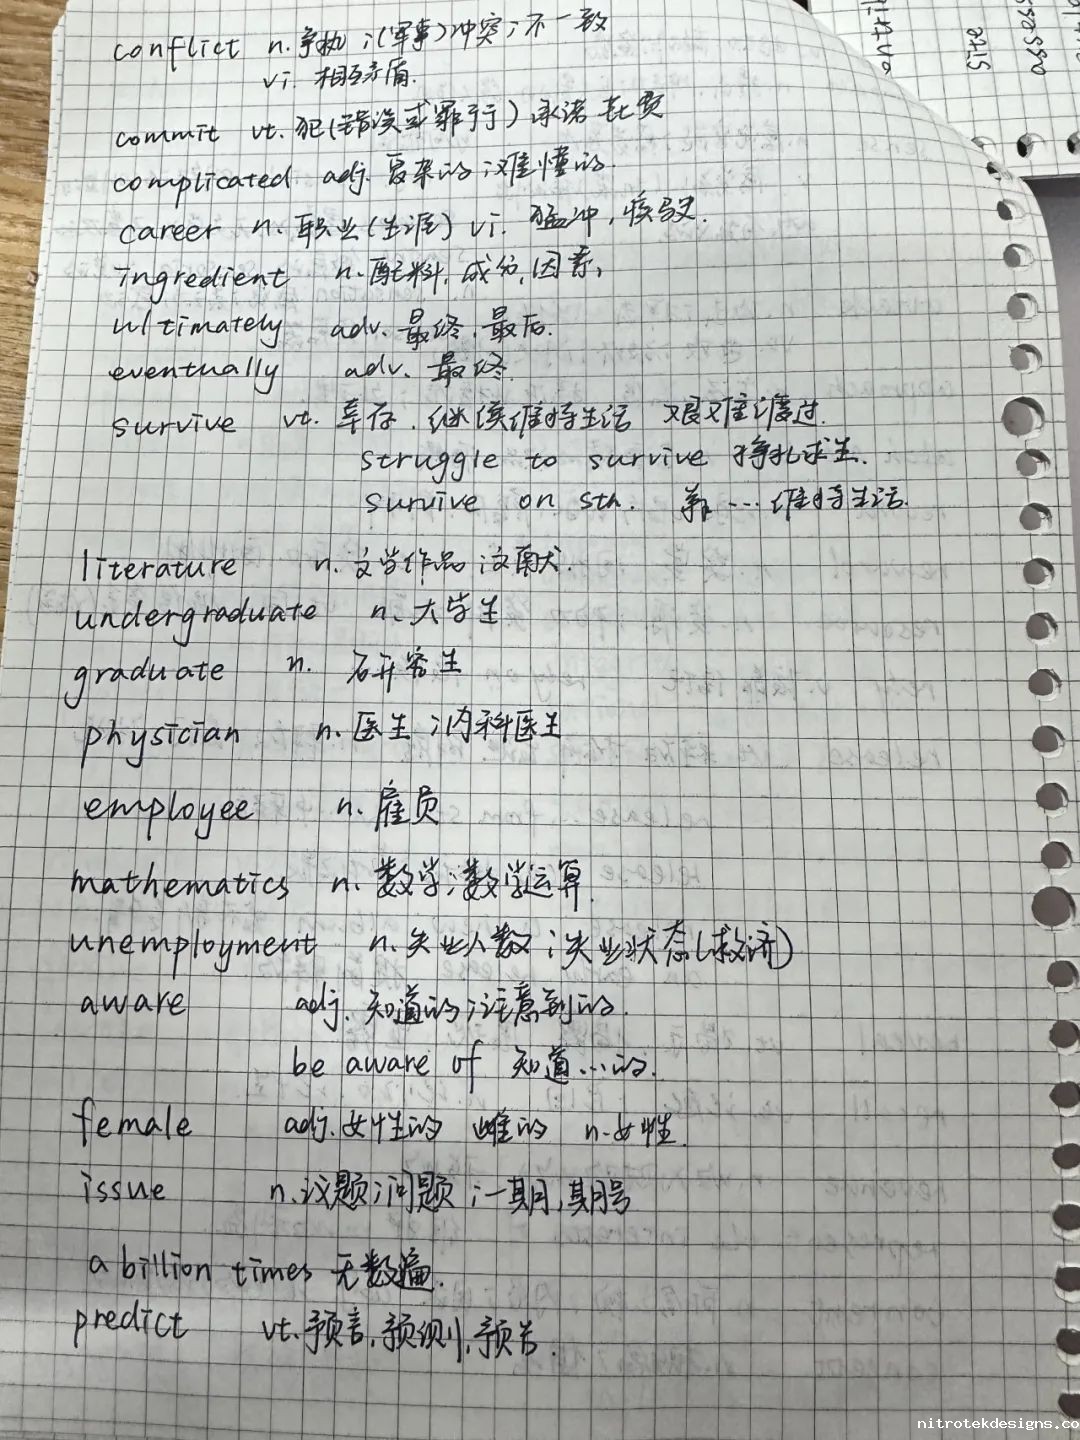 conflict n. 争执；(军事)冲突；不一致
vi. 相互矛盾.
commit vt. 犯(错误或罪行) 承诺 花费
complicated adj. 复杂的；难懂的.
career n. 职业(生涯) vi. 猛冲，疾驶.
ingredient n. 配料, 成分, 因素,
ultimately adv. 最终, 最后.
eventually adv. 最终.
survive vt. 幸存. 继续维持生活 艰难渡过.
struggle to survive 挣扎求生.
survive on sth. 靠…维持生活.
literature n. 文学作品；文献.
undergraduate n. 大学生
graduate n. 研究生
physician n. 医生；内科医生
employee n. 雇员
mathematics n. 数学；数学运算.
unemployment n. 失业人数；失业状态(救济)
aware adj. 知道的；注意到的.
be aware of 知道…的.
female adj. 女性的 雌的 n. 女性.
issue n. 议题；问题；一期，期号
a billion times 无数遍.
predict vt. 预言, 预测, 预告.
site
assess
nitrotekdesigns.co